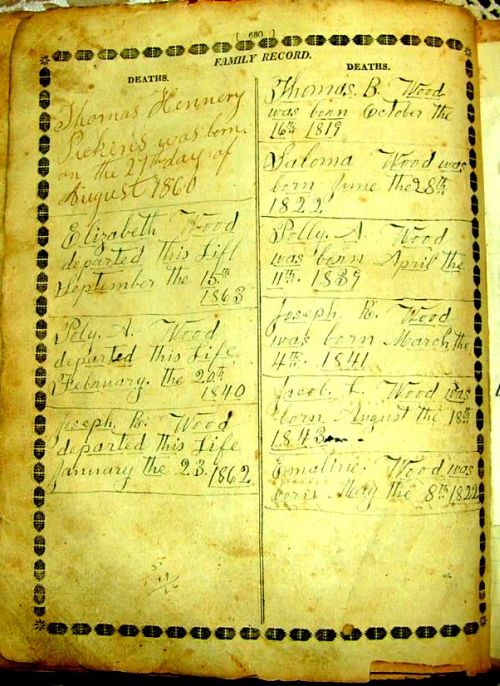 [ 680 ]
FAMILY RECORD.
DEATHS.
Thomas Hennery
Pickens was born
on the 27th day of
August 1860
Elizabeth Wood
departed this Life
September the 15th
1863
Poly. A. Wood
departed this Life
February. the 20th
1840
Joseph. R. Wood
departed this Life
January the 23. 1862
DEATHS.
Thomas. B. Wood
was born October the
16th 1819
Saloma Wood was
born June the 28th
1822
Polly. A. Wood
was born April the
11th. 1839
Joseph. R. Wood
was born March the
4th. 1841
Jacob. L. Wood was
born August the 18th
1843
Emaline. Wood was
born May the 8th 1822